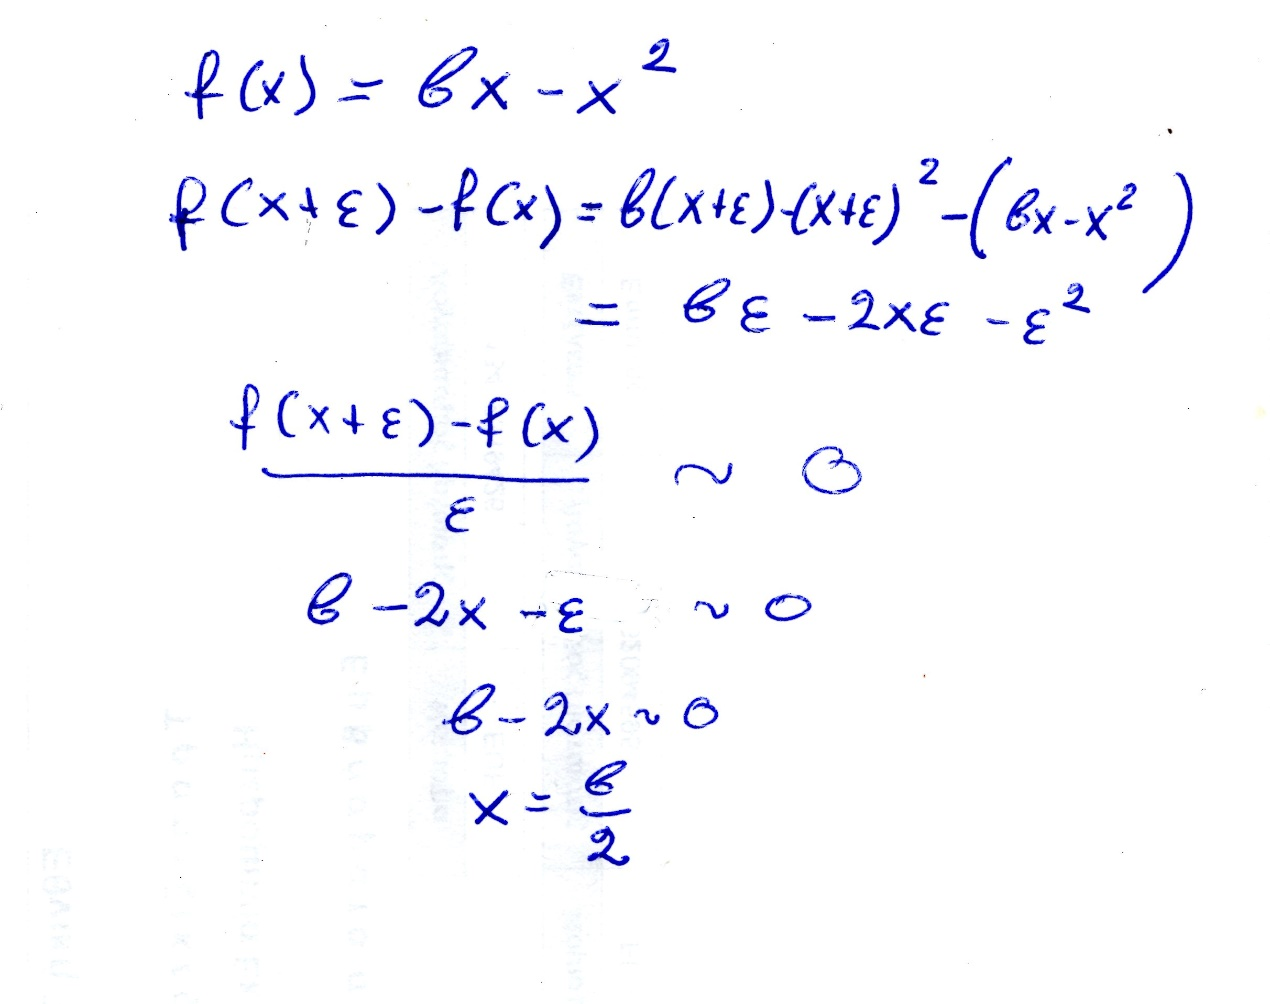 f(x) = bx - x²
f(x+ε) - f(x) = b(x+ε) - (x+ε)² - (bx - x²)
= bε - 2xε - ε²
f(x+ε) - f(x)
ε
~ 0
b - 2x - ε ~ 0
b - 2x ~ 0
x = b/2